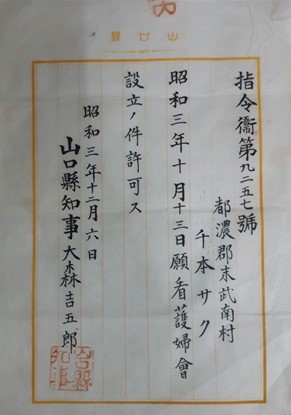 山口縣
指令衞第九二五七號
都濃郡末武南村
千本サク
昭和三年十月十三日願看護婦會
設立ノ件許可ス
昭和三年十二月六日
山口縣知事大森吉五郎
山口縣知事